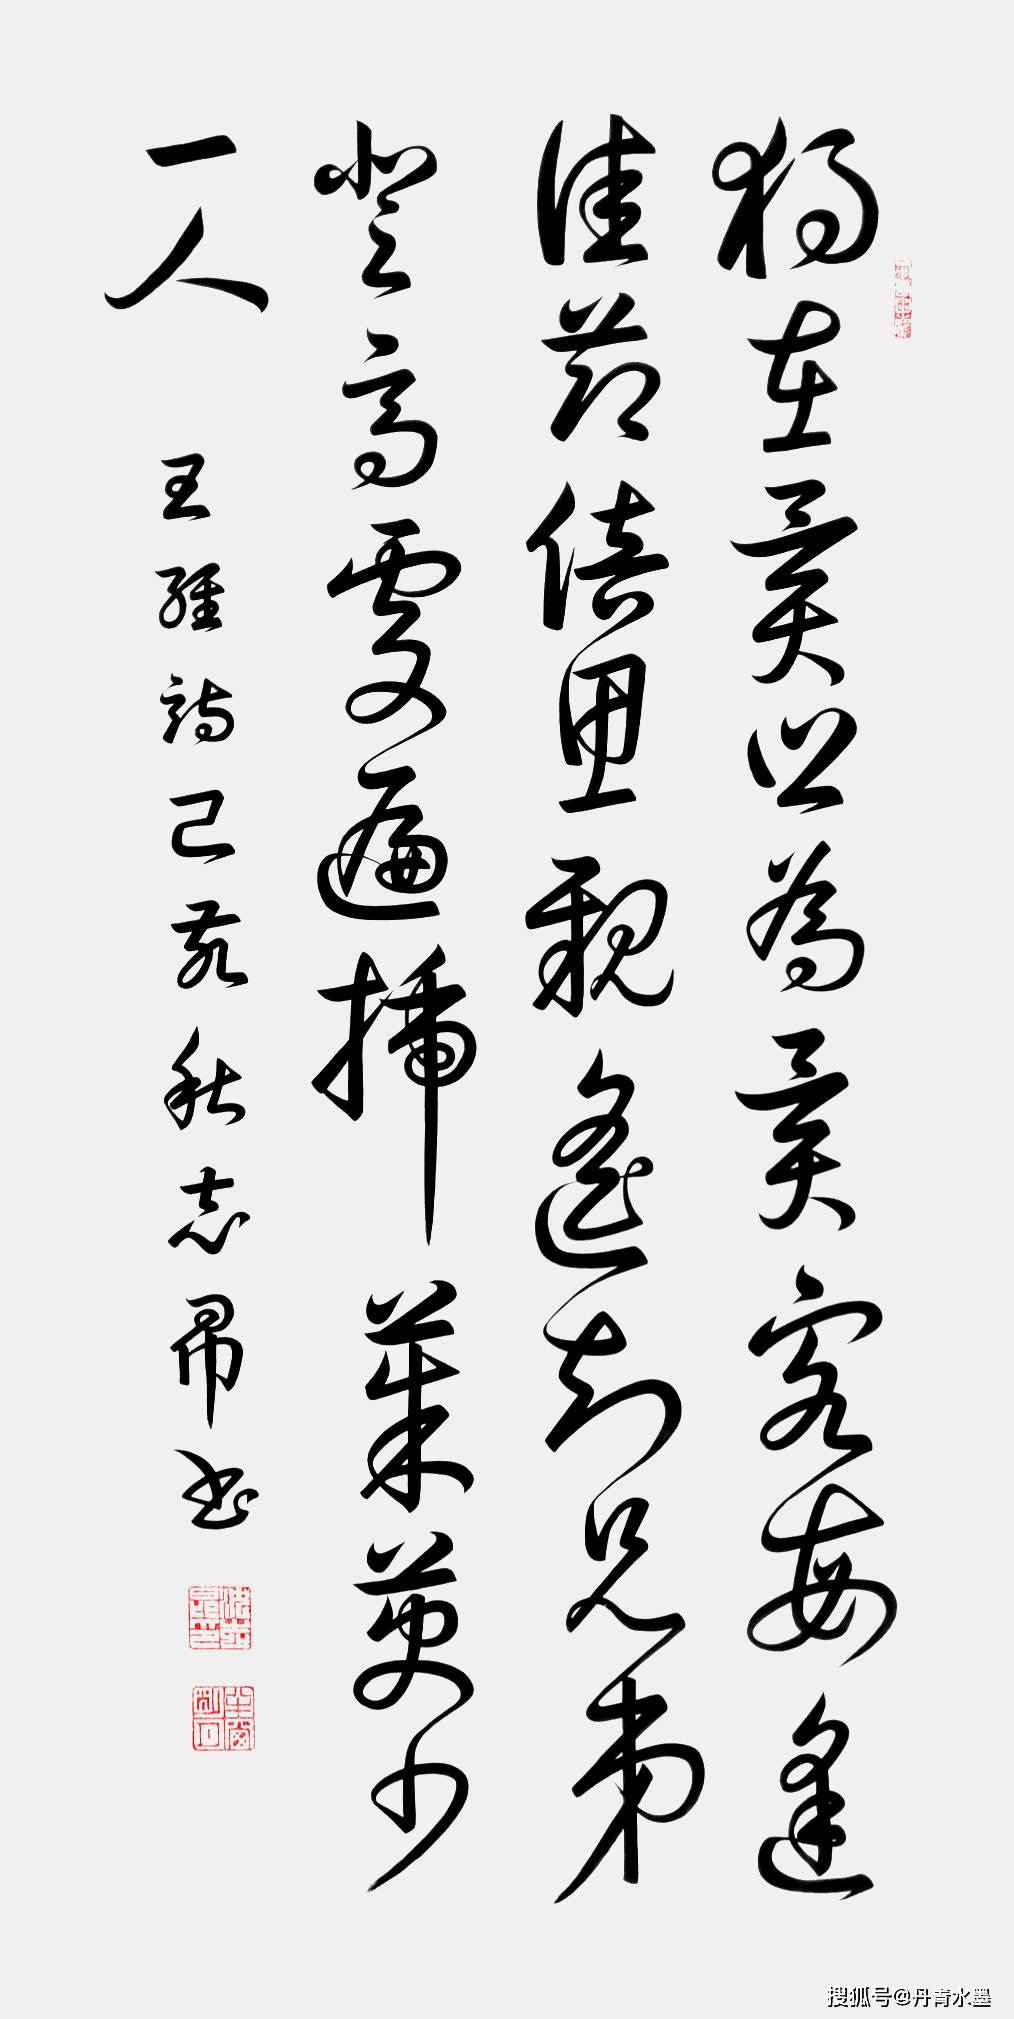 獨在異鄉為異客每逢
佳節倍思親遙知兄弟
登高處遍插茱萸少
一人 王維詩己亥秋志書
搜狐号@丹青水墨